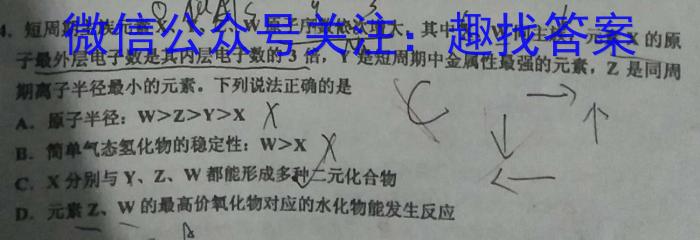 微信公众号关注：趣找答案
短周期主族元素X
W
大，其中
的原
子最外层电子数是其内层电子数的3倍，Y是短周期中金属性最强的元素，Z是同周
期离子半径最小的元素。下列说法正确的是
A．原子半径：W>Z>Y>X
B．简单气态氢化物的稳定性：W>X
C．X分别与Y、Z、W都能形成多种二元化合物
D．元素Z、W的最高价氧化物对应的水化物能发生反应